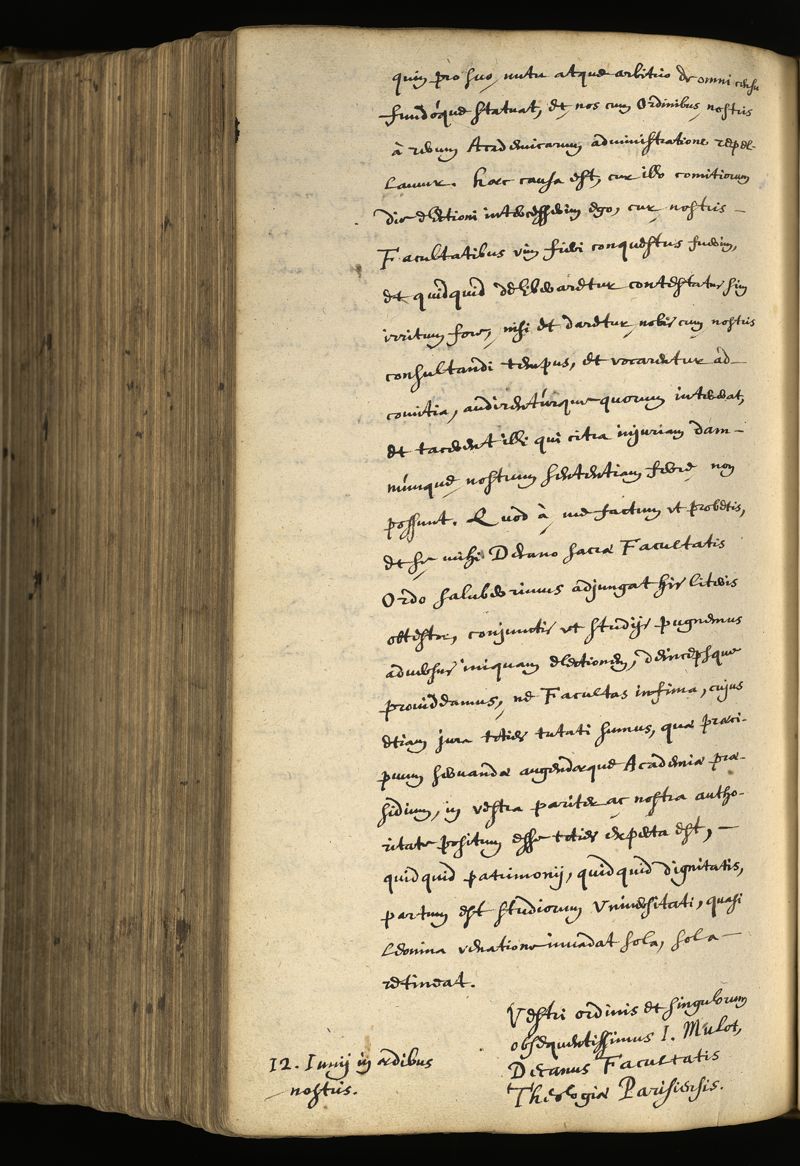 quin pro suo nutu atque arbitrio de omni censu
fundóque statuat, et nos cum Ordinibus nostris
à rerum Academicarum administratione repel-
lamur. hæc causa est, cur illo comitiorum
die electioni intercesserim ego, cur nostris
Facultatibus vim fieri conquestus fuerim,
et quidquid deliberaretur contestatus sim
irritum fore, nisi et daretur nobis cum nostris
consultandi tempus, et vocarentur ad
comitia, audirentúrque quorum intererat,
et tacerent illi qui citra injuriam dam-
númque nostrum sententiam ferre non
possunt. Quod à me factum vt probetis,
et se mihi Decano sacræ Facultatis
Ordo saluberrimus adjungat his literis
obtestor, conjunctis vt studijs pugnemus
aduersus iniquam electionem, deincepsque
prouideamus, ne Facultas infima, cujus
etiam jura toties tutati sumus, quæ præci-
puum seruandæ augendæque Academiæ præ-
sidium, in vestra pariter ac nostra autho-
ritate positum esse toties experta est,
quidquid patrimonij, quidquid dignitatis,
partum est studiorum Vniuersitati, quasi
Leonina venatione inuadat sola, sola
retineat.
Vestri ordinis et singulorum
obsequentissimus I. Mulot,
Decanus Facultatis
Theologiæ Parisiensis.
12. Iunij in ædibus
nostris.